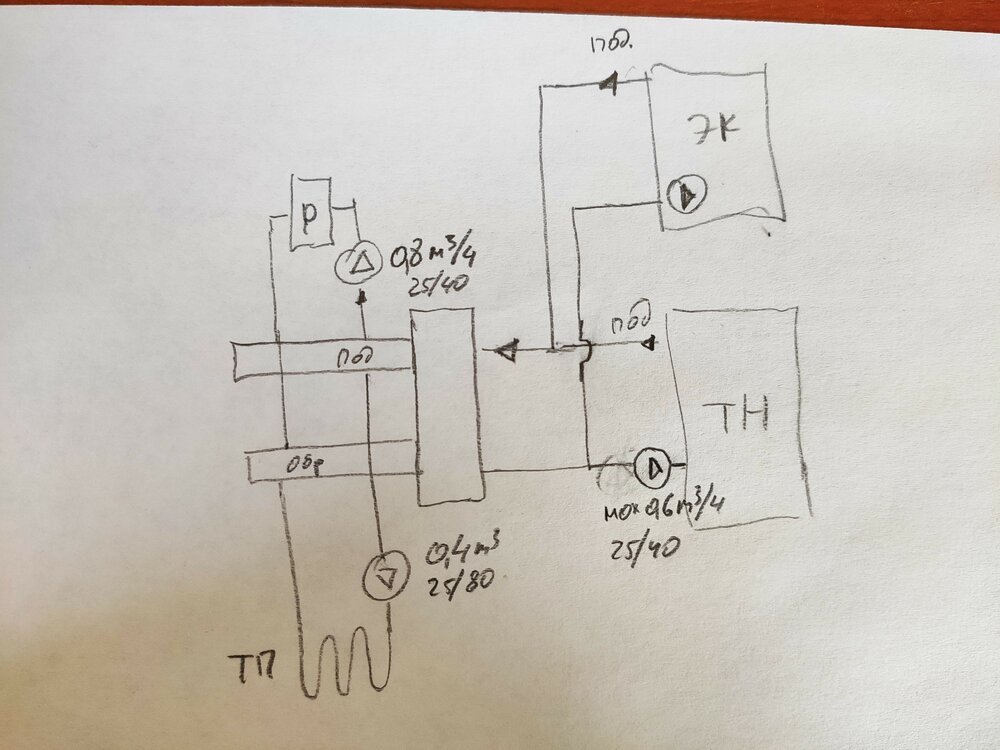 под.
ЭК
Р
0,8 м³/ч
25/40
под
под
ТН
обр
мах 0,6 м³/ч
25/40
0,4 м³
25/80
ТП